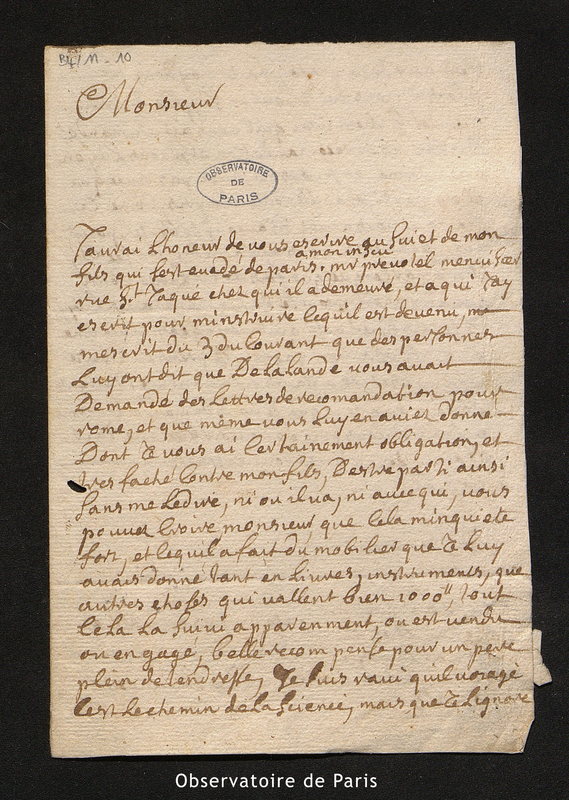 B4/11-10
Monsieur
OBSERVATOIRE
DE
PARIS
J'aurai Lhoneur de vous escrire au suiet de mon
fils qui s'est evadé de paris a mon insceu, mr prevotel menuisier
rue St Jaqué chez qui il a demeuré, et a qui J'ay
escrit pour minstruire cequil est devenu, me
mescrit du 3 du Courant que des personnes
Luy ont dit que DeLalande vous avait
Demandé des Lettres de recomandation pour
rome, et que même vous Luy en aviez donné
Dont Je vous ai Certainement obligation, et
tres faché Contre mon fils, Destre parti ainsi
sans me Le dire, ni ou il va, ni avec qui, vous
pouvez Croire monsieur que Cela minquiete
fort, et Cequil a fait du mobilier que Je Luy
avais donné tant en Livres, instruments, que
autres choses qui vallent bien 1000tt, tout
Cela La suivi apparenment, ou est vendu
ou en gage, belle recompense pour un pere
plein de tendresse, Je suis ravi quil voyage
Cest Le chemin de La science, mais que Je Lignore
Observatoire de Paris